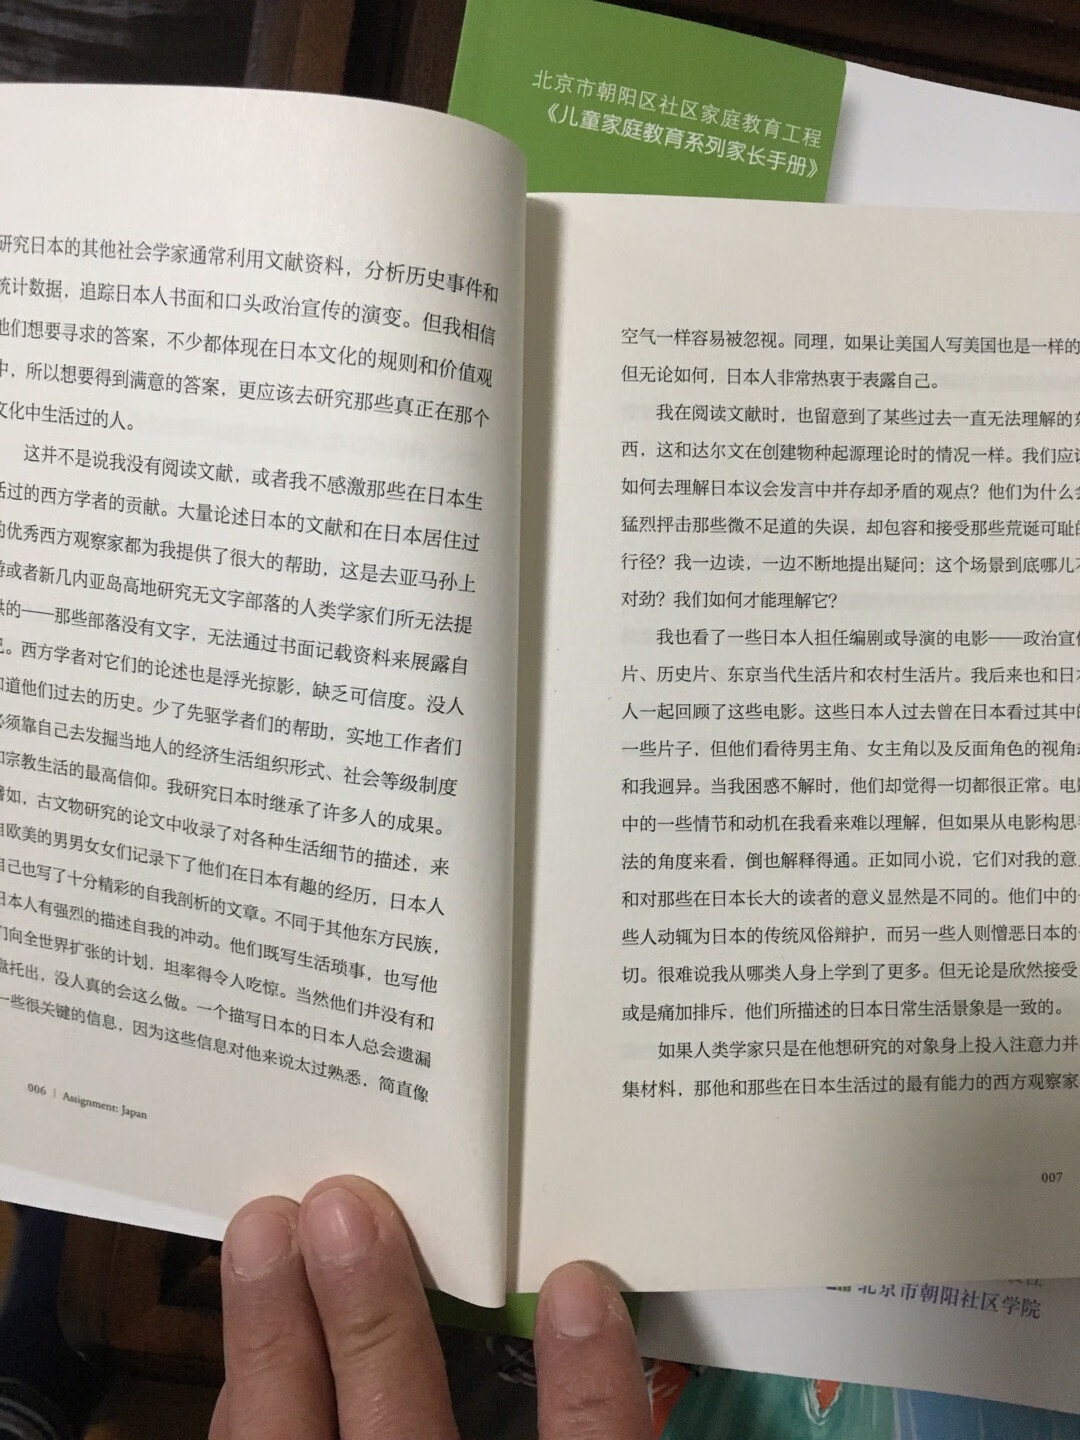 北京市朝阳区社区家庭教育工程
《儿童家庭教育系列家长手册》
研究日本的其他社会学家通常利用文献资料，分析历史事件和
统计数据，追踪日本人书面和口头政治宣传的演变。但我相信
他们想要寻求的答案，不少都体现在日本文化的规则和价值观
中，所以想要得到满意的答案，更应该去研究那些真正在那个
文化中生活过的人。
这并不是说我没有阅读文献，或者我不感激那些在日本生
活过的西方学者的贡献。大量论述日本的文献和在日本居住过
的优秀西方观察家都为我提供了很大的帮助，这是去亚马孙上
游或者新几内亚岛高地研究无文字部落的人类学家们所无法提
供的——那些部落没有文字，无法通过书面记载资料来展露自
己。西方学者对它们的论述也是浮光掠影，缺乏可信度。没人
知道他们过去的历史。少了先驱学者们的帮助，实地工作者们
必须靠自己去发掘当地人的经济生活组织形式、社会等级制度
和宗教生活的最高信仰。我研究日本时继承了许多人的成果。
譬如，古文物研究的论文中收录了对各种生活细节的描述，来
自欧美的男男女女们记录下了他们在日本有趣的经历，日本人
自己也写了十分精彩的自我剖析的文章。不同于其他东方民族，
日本人有强烈的描述自我的冲动。他们既写生活琐事，也写他
们向全世界扩张的计划，坦率得令人吃惊。当然他们并没有和
盘托出，没人真的会这么做。一个描写日本的日本人总会遗漏
一些很关键的信息，因为这些信息对他来说太过熟悉，简直像
006 | Assignment: Japan
空气一样容易被忽视。同理，如果让美国人写美国也是一样的
但无论如何，日本人非常热衷于表露自己。
我在阅读文献时，也留意到了某些过去一直无法理解的东
西，这和达尔文在创建物种起源理论时的情况一样。我们应该
如何去理解日本议会发言中并存却矛盾的观点？他们为什么会
猛烈抨击那些微不足道的失误，却包容和接受那些荒诞可耻的
行径？我一边读，一边不断地提出疑问：这个场景到底哪儿不
对劲？我们如何才能理解它？
我也看了一些日本人担任编剧或导演的电影——政治宣传
片、历史片、东京当代生活片和农村生活片。我后来也和日本
人一起回顾了这些电影。这些日本人过去曾在日本看过其中的
一些片子，但他们看待男主角、女主角以及反面角色的视角却
和我迥异。当我困惑不解时，他们却觉得一切都很正常。电影
中的一些情节和动机在我看来难以理解，但如果从电影构思手
法的角度来看，倒也解释得通。正如同小说，它们对我的意义
和对那些在日本长大的读者的意义显然是不同的。他们中的一
些人动辄为日本的传统风俗辩护，而另一些人则憎恶日本的一
切。很难说我从哪类人身上学到了更多。但无论是欣然接受
或是痛加排斥，他们所描述的日本日常生活景象是一致的。
如果人类学家只是在他想研究的对象身上投入注意力并
集材料，那他和那些在日本生活过的最有能力的西方观察家
007
北京市朝阳社区学院